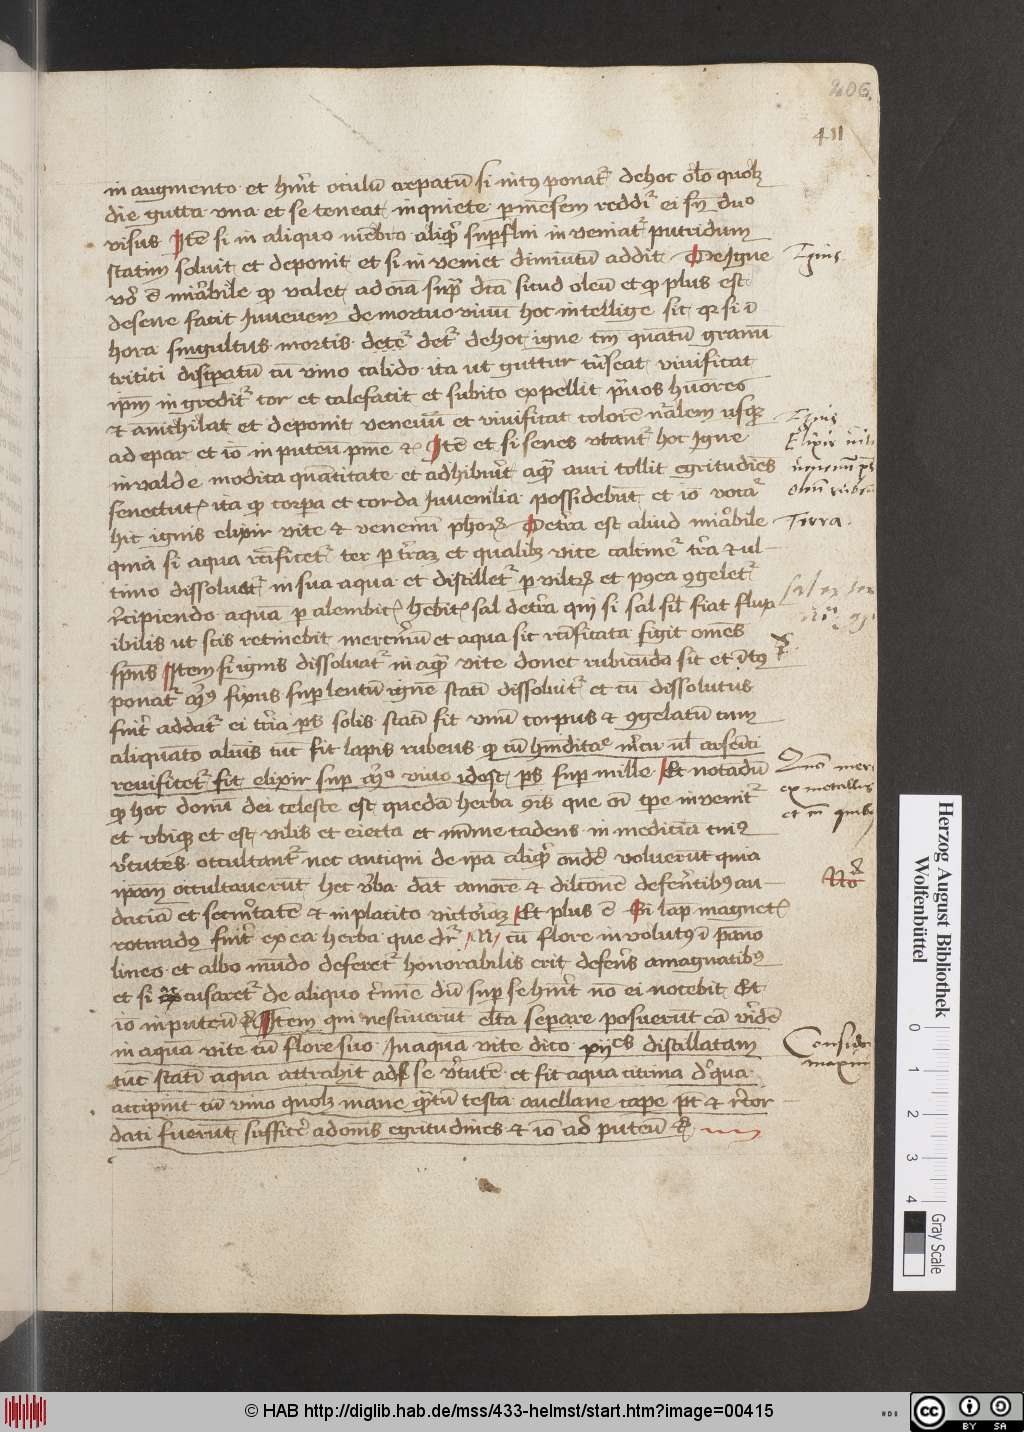 206.
411
in augmento et hūit oculū crepatū si intꝯ ponat̄ de hoc ol̄o quol̄z
die gutta vna et se teneat in quiete p mēsem reddit̄ ei sn̄ duo
visus Itē si in aliquo mēbro aliqͥs suꝑflui in veniat̄ putridum
statim soluit et deponit et si in veniet diminutū addit De Igne
vō ē mirabile qꝫ valet ad oīa supͣ dcā sicud oleū et qꝫ plus est
de sene facit Iuuenem de mortuo viuū hoc intellige sic qꝫ si ī
hora singultus mortis det de hoc igne tm̄ quātū granū
tritici distꝑatū cū vino calido ita ut guttur trāseat viuificat
ip̄m in gredit̄ cor et calefacit et subito expellit pͣuos hūores
et anichilat et deponit venenū et viuificat colorē nr̄alem usqꝫ
ad epar et iō in puteū pme etc Itē et si senes vtant̄ hoc Igne
in valde modica quātitate et adhibūt aqͣ auri tollit egritudīes
senectut̄ ita qꝫ corpa et corda Iuuenilia possidebūt et iō vocat̄
hic ignis elixir vite et venenū ph̄or De tr̄a est aliud mirabile
quia si aqua rc̄ificet̄ ter p trāz et qualibꝫ vice calcinet̄ tr̄a et ul
timo dissoluat̄ in sua aqua et distillet̄ p viltꝝ et pꝯea ꝯgelet̄
rͤcipiendo aquā p alembic̄ hebit̄ sal de tr̄a qui si sal sil̄ fiat flux
ibilis ut scis retinebit mercuriū et aqua sic rc̄ificata figit om̄es
sp̄us Item si ignis dissoluat̄ in aqͣ vite donec rubicunda sit et ītꝯ
ponat̄ fixus suꝑ lentū igne statī dissoluit̄ et cū dissolutus
fuit addat̄ ei tr̄cia ps solis statī fit vnū corpus et ꝯgelatū cum
aliquāto alvis tuc fit lapis rubeus qꝫ cū hindita mrcu ul̄ arsenti
reuificet̄ fit elixir suꝑ viuo idest ps suꝑ mille Et notadū
qꝫ hoc donū dei celeste est quedā herba ꝯis que oī tpe in venit̄
et vbiqꝫ et est vilis et eiecta et mīme cadens in medicīa cuiꝯ
vͥtutes occultant̄ nec antiqui de ipā aliqͥs ondē voluerūt quia
ipam occultauerūt hec vͥba dat amorē et dilcōnē defer̄tibꝯ au
daciā et secͣritatē et in placito victoriāz Et plus ē Si lap magnet̄
rotundꝯ fuit ex ea herba que dr̄ N cū flore in volutꝯ ī pāno
lineo et albo mūdo deferet̄ honorabilis erit defer̄s a magnatibꝯ
et si cusaret̄ de aliquo crīmīe dū suꝑ se hūit nō ei nocebit Et
iō in puteū Item qui nesciuerūt elta separe posuerūt eā vͥidē
in aqua vite cū flore suo In aqua vite dico xijes distillatam
tūc statī aqua attrahit ad se vͥtutē et fit aqua citrina de qua
accipiut cū vino quolz mane quātū testa auellane cape pt et rͤcor
dati fuerūt sufficit ad omīs egritudines et iō ad puteū
Ignis
Ignis
Elixir
venenū
oleū rubeū
Terra.
sal ex ter
Quō mer
ex metallis
et in quibꝯ
No
Consider
maxim
Herzog August Bibliothek
Wolfenbüttel
0 1 2 3 4
Gray Scale
© HAB http://diglib.hab.de/mss/433-helmst/start.htm?image=00415
cc BY SA